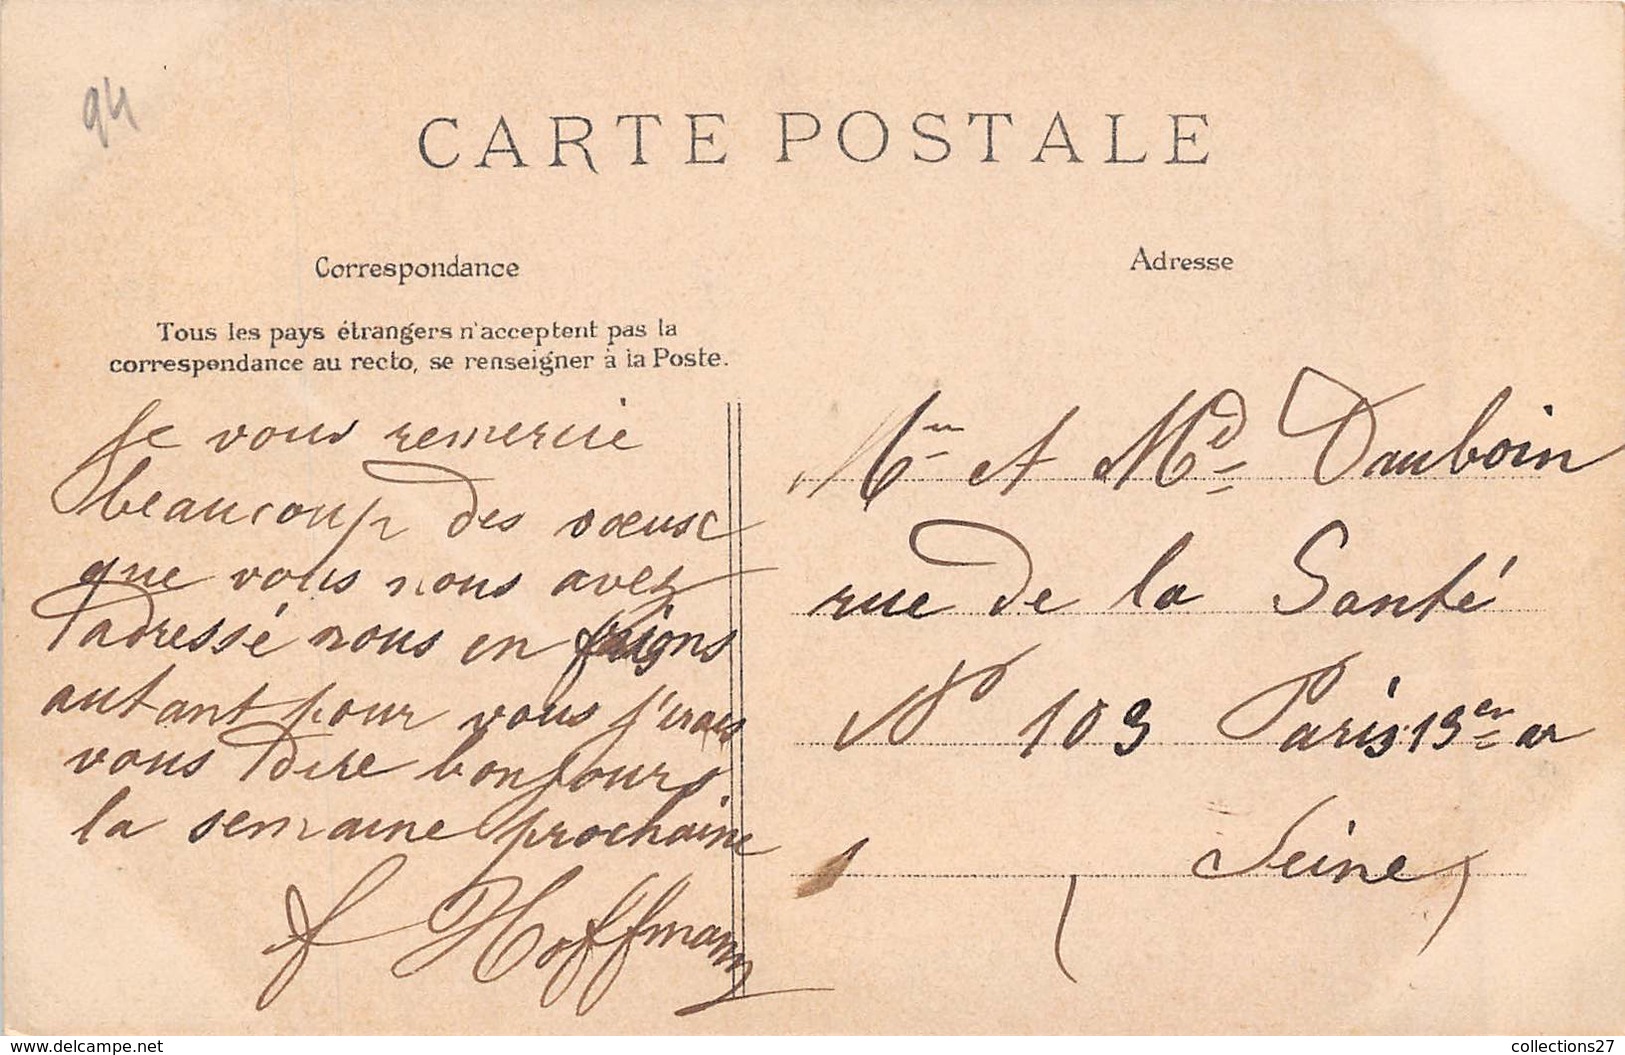 94
CARTE POSTALE
Correspondance
Tous les pays étrangers n'acceptent pas la
correspondance au recto, se renseigner à la Poste.
Je vous remercie
beaucoup des vœux
que vous nous avez
adressé nous en faisons
autant pour vous j'irais
vous dire bonjours
la semaine prochaine
f Hoffmann
Adresse
Mr et Md Dauboin
rue de la Santé
No 103 Paris 13er ar
(Seine)
www.delcampe.net
collections27